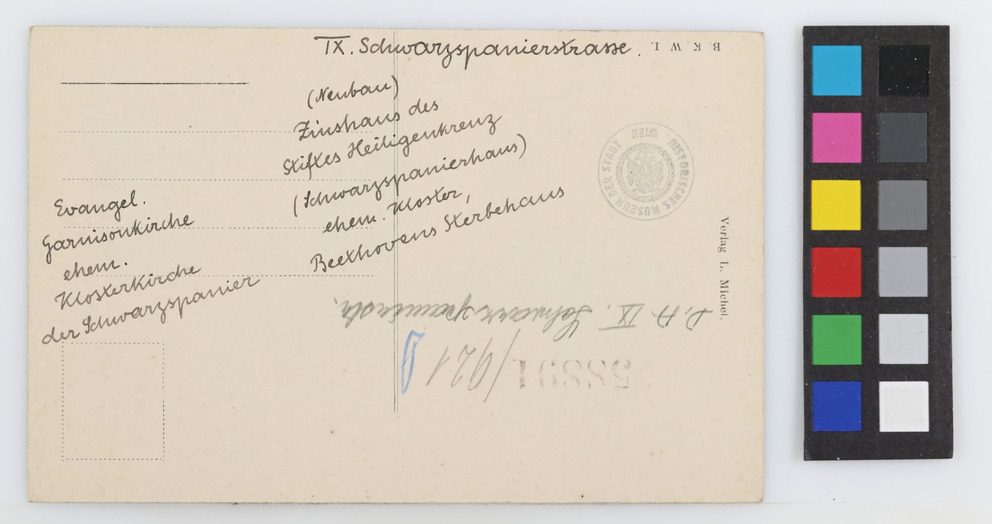 IX. Schwarzspanierstrasse.
B. K. W. I.
(Neubau)
Zinshaus des
Stiftes Heiligenkreuz
(Schwarzspanierhaus)
ehem. Kloster,
Beethovens Sterbehaus
Evangel.
Garnisonkirche
ehem.
Klosterkirche
der Schwarzspanier
HISTORISCHES MUSEUM DER STADT WIEN
Verlag L. Michel.
IX. Schwarzspanierstr.
58891
/921